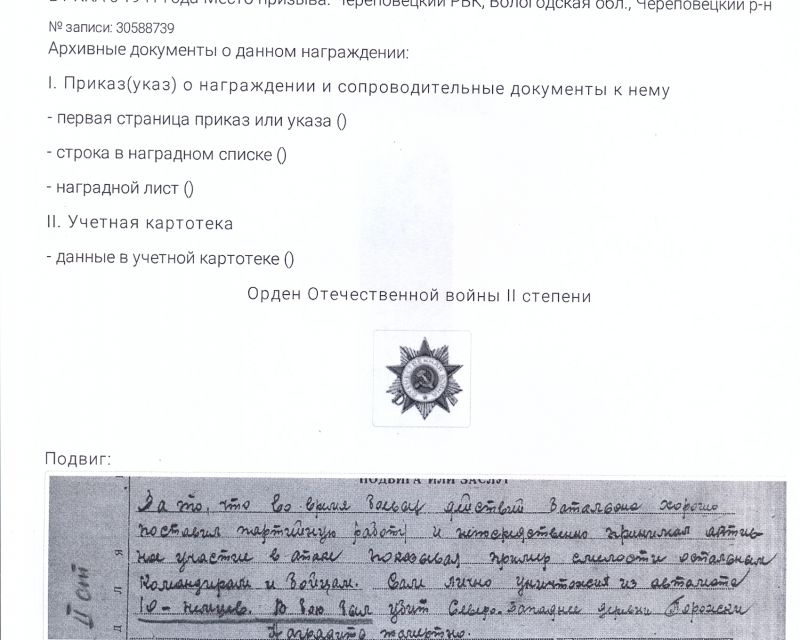 в РККА с 1941 года Место призыва: Череповецкий РВК, Вологодская обл., Череповецкий р-н
№ записи: 30588739
Архивные документы о данном награждении:
I. Приказ(указ) о награждении и сопроводительные документы к нему
- первая страница приказ или указа ()
- строка в наградном списке ()
- наградной лист ()
II. Учетная картотека
- данные в учетной картотеке ()
Орден Отечественной войны II степени
Подвиг:
ПОДВИГА ИЛИ ЗАСЛУГ
За то, что во время боевых действий батальона хорошо
поставил партийную работу и непосредственно принимал актив-
ное участие в атаке показывал пример смелости остальным
командирам и бойцам. Сам лично уничтожил из автомата
10 - немцев. В бою был убит Северо-Западнее деревни
Наградить посмертно.
II ст